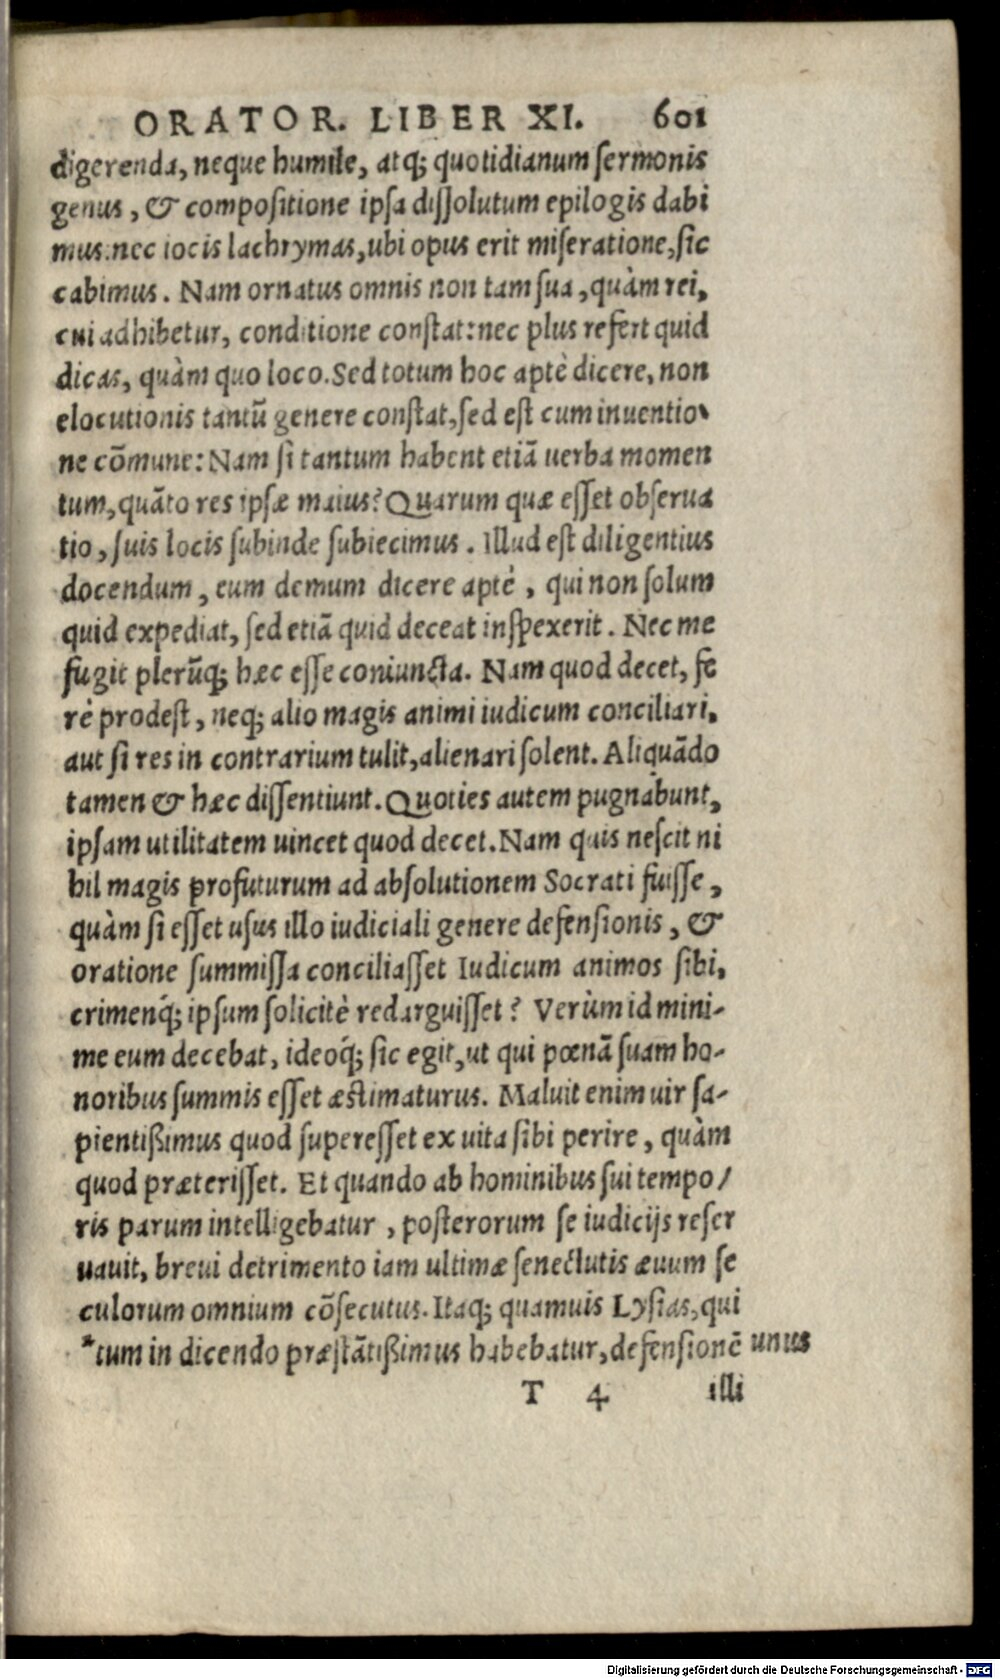 ORATOR. LIBER XI. 601
digerenda, neque humile, atq; quotidianum sermonis
genus, & compositione ipsa dissolutum epilogis dabi
mus: nec iocis lachrymas, ubi opus erit miseratione, sic
cabimus. Nam ornatus omnis non tam sua, quàm rei,
cui adhibetur, conditione constat: nec plus refert quid
dicas, quàm quo loco. Sed totum hoc aptè dicere, non
elocutionis tantũ genere constat, sed est cum inuentio-
ne cõmune: Nam si tantum habent etiã uerba momen
tum, quãto res ipsæ maius? Quarum quæ esset obserua
tio, suis locis subinde subiecimus. Illud est diligentius
docendum, eum demum dicere aptè, qui non solum
quid expediat, sed etiã quid deceat inspexerit. Nec me
fugit plerũq; hæc esse coniuncta. Nam quod decet, fe
rè prodest, neq; alio magis animi iudicum conciliari,
aut si res in contrarium tulit, alienari solent. Aliquãdo
tamen & hæc dissentiunt. Quoties autem pugnabunt,
ipsam utilitatem uincet quod decet. Nam quis nescit ni
hil magis profuturum ad absolutionem Socrati fuisse,
quàm si esset usus illo iudiciali genere defensionis, &
oratione summissa conciliasset Iudicum animos sibi,
crimenq́; ipsum solicitè redarguisset? Verùm id mini-
me eum decebat, ideoq́; sic egit, ut qui pœnã suam ho-
noribus summis esset æstimaturus. Maluit enim uir sa-
pientißimus quod superesset ex uita sibi perire, quàm
quod præterisset. Et quando ab hominibus sui tempo/
ris parum intelligebatur, posterorum se iudicijs reser
uauit, breui detrimento iam ultimæ senectutis æuum se
culorum omnium cõsecutus. Itaq; quamuis Lysias, qui
*tum in dicendo præstãtißimus habebatur, defensionẽ unus
T 4 illi
Digitalisierung gefördert durch die Deutsche Forschungsgemeinschaft - DFG